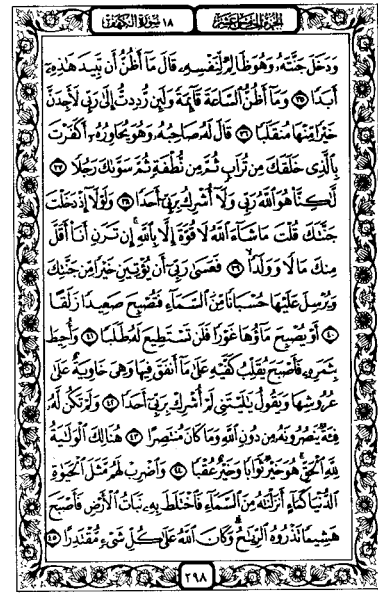 الجزء الخامس عشر
١٨ سورة الكهف
وَدَخَلَ جَنَّتَهُۥ وَهُوَ ظَالِمٌ لِّنَفْسِهِۦ قَالَ مَآ أَظُنُّ أَن تَبِيدَ هَٰذِهِۦٓ
أَبَدًا ٣٥ وَمَآ أَظُنُّ ٱلسَّاعَةَ قَآئِمَةً وَلَئِن رُّدِدتُّ إِلَىٰ رَبِّى لَأَجِدَنَّ
خَيْرًا مِّنْهَا مُنقَلَبًا ٣٦ قَالَ لَهُۥ صَاحِبُهُۥ وَهُوَ يُحَاوِرُهُۥٓ أَكَفَرْتَ
بِٱلَّذِى خَلَقَكَ مِن تُرَابٍ ثُمَّ مِن نُّطْفَةٍ ثُمَّ سَوَّىٰكَ رَجُلًا ٣٧
لَّٰكِنَّا۠ هُوَ ٱللَّهُ رَبِّى وَلَآ أُشْرِكُ بِرَبِّىٓ أَحَدًا ٣٨ وَلَوْلَآ إِذْ دَخَلْتَ
جَنَّتَكَ قُلْتَ مَا شَآءَ ٱللَّهُ لَا قُوَّةَ إِلَّا بِٱللَّهِ ۚ إِن تَرَنِ أَنَا۠ أَقَلَّ
مِنكَ مَالًا وَوَلَدًا ٣٩ فَعَسَىٰ رَبِّىٓ أَن يُؤْتِيَنِ خَيْرًا مِّن جَنَّتِكَ
وَيُرْسِلَ عَلَيْهَا حُسْبَانًا مِّنَ ٱلسَّمَآءِ فَتُصْبِحَ صَعِيدًا زَلَقًا
٤٠ أَوْ يُصْبِحَ مَآؤُهَا غَوْرًا فَلَن تَسْتَطِيعَ لَهُۥ طَلَبًا ٤١ وَأُحِيطَ
بِثَمَرِهِۦ فَأَصْبَحَ يُقَلِّبُ كَفَّيْهِ عَلَىٰ مَآ أَنفَقَ فِيهَا وَهِىَ خَاوِيَةٌ عَلَىٰ
عُرُوشِهَا وَيَقُولُ يَٰلَيْتَنِى لَمْ أُشْرِكْ بِرَبِّىٓ أَحَدًا ٤٢ وَلَمْ تَكُن لَّهُۥ
فِئَةٌ يَنصُرُونَهُۥ مِن دُونِ ٱللَّهِ وَمَا كَانَ مُنتَصِرًا ٤٣ هُنَالِكَ ٱلْوَلَٰيَةُ
لِلَّهِ ٱلْحَقِّ ۚ هُوَ خَيْرٌ ثَوَابًا وَخَيْرٌ عُقْبًا ٤٤ وَٱضْرِبْ لَهُم مَّثَلَ ٱلْحَيَوٰةِ
ٱلدُّنْيَا كَمَآءٍ أَنزَلْنَٰهُ مِنَ ٱلسَّمَآءِ فَٱخْتَلَطَ بِهِۦ نَبَاتُ ٱلْأَرْضِ فَأَصْبَحَ
هَشِيمًا تَذْرُوهُ ٱلرِّيَٰحُ ۗ وَكَانَ ٱللَّهُ عَلَىٰ كُلِّ شَىْءٍ مُّقْتَدِرًا ٤٥
٢٩٨